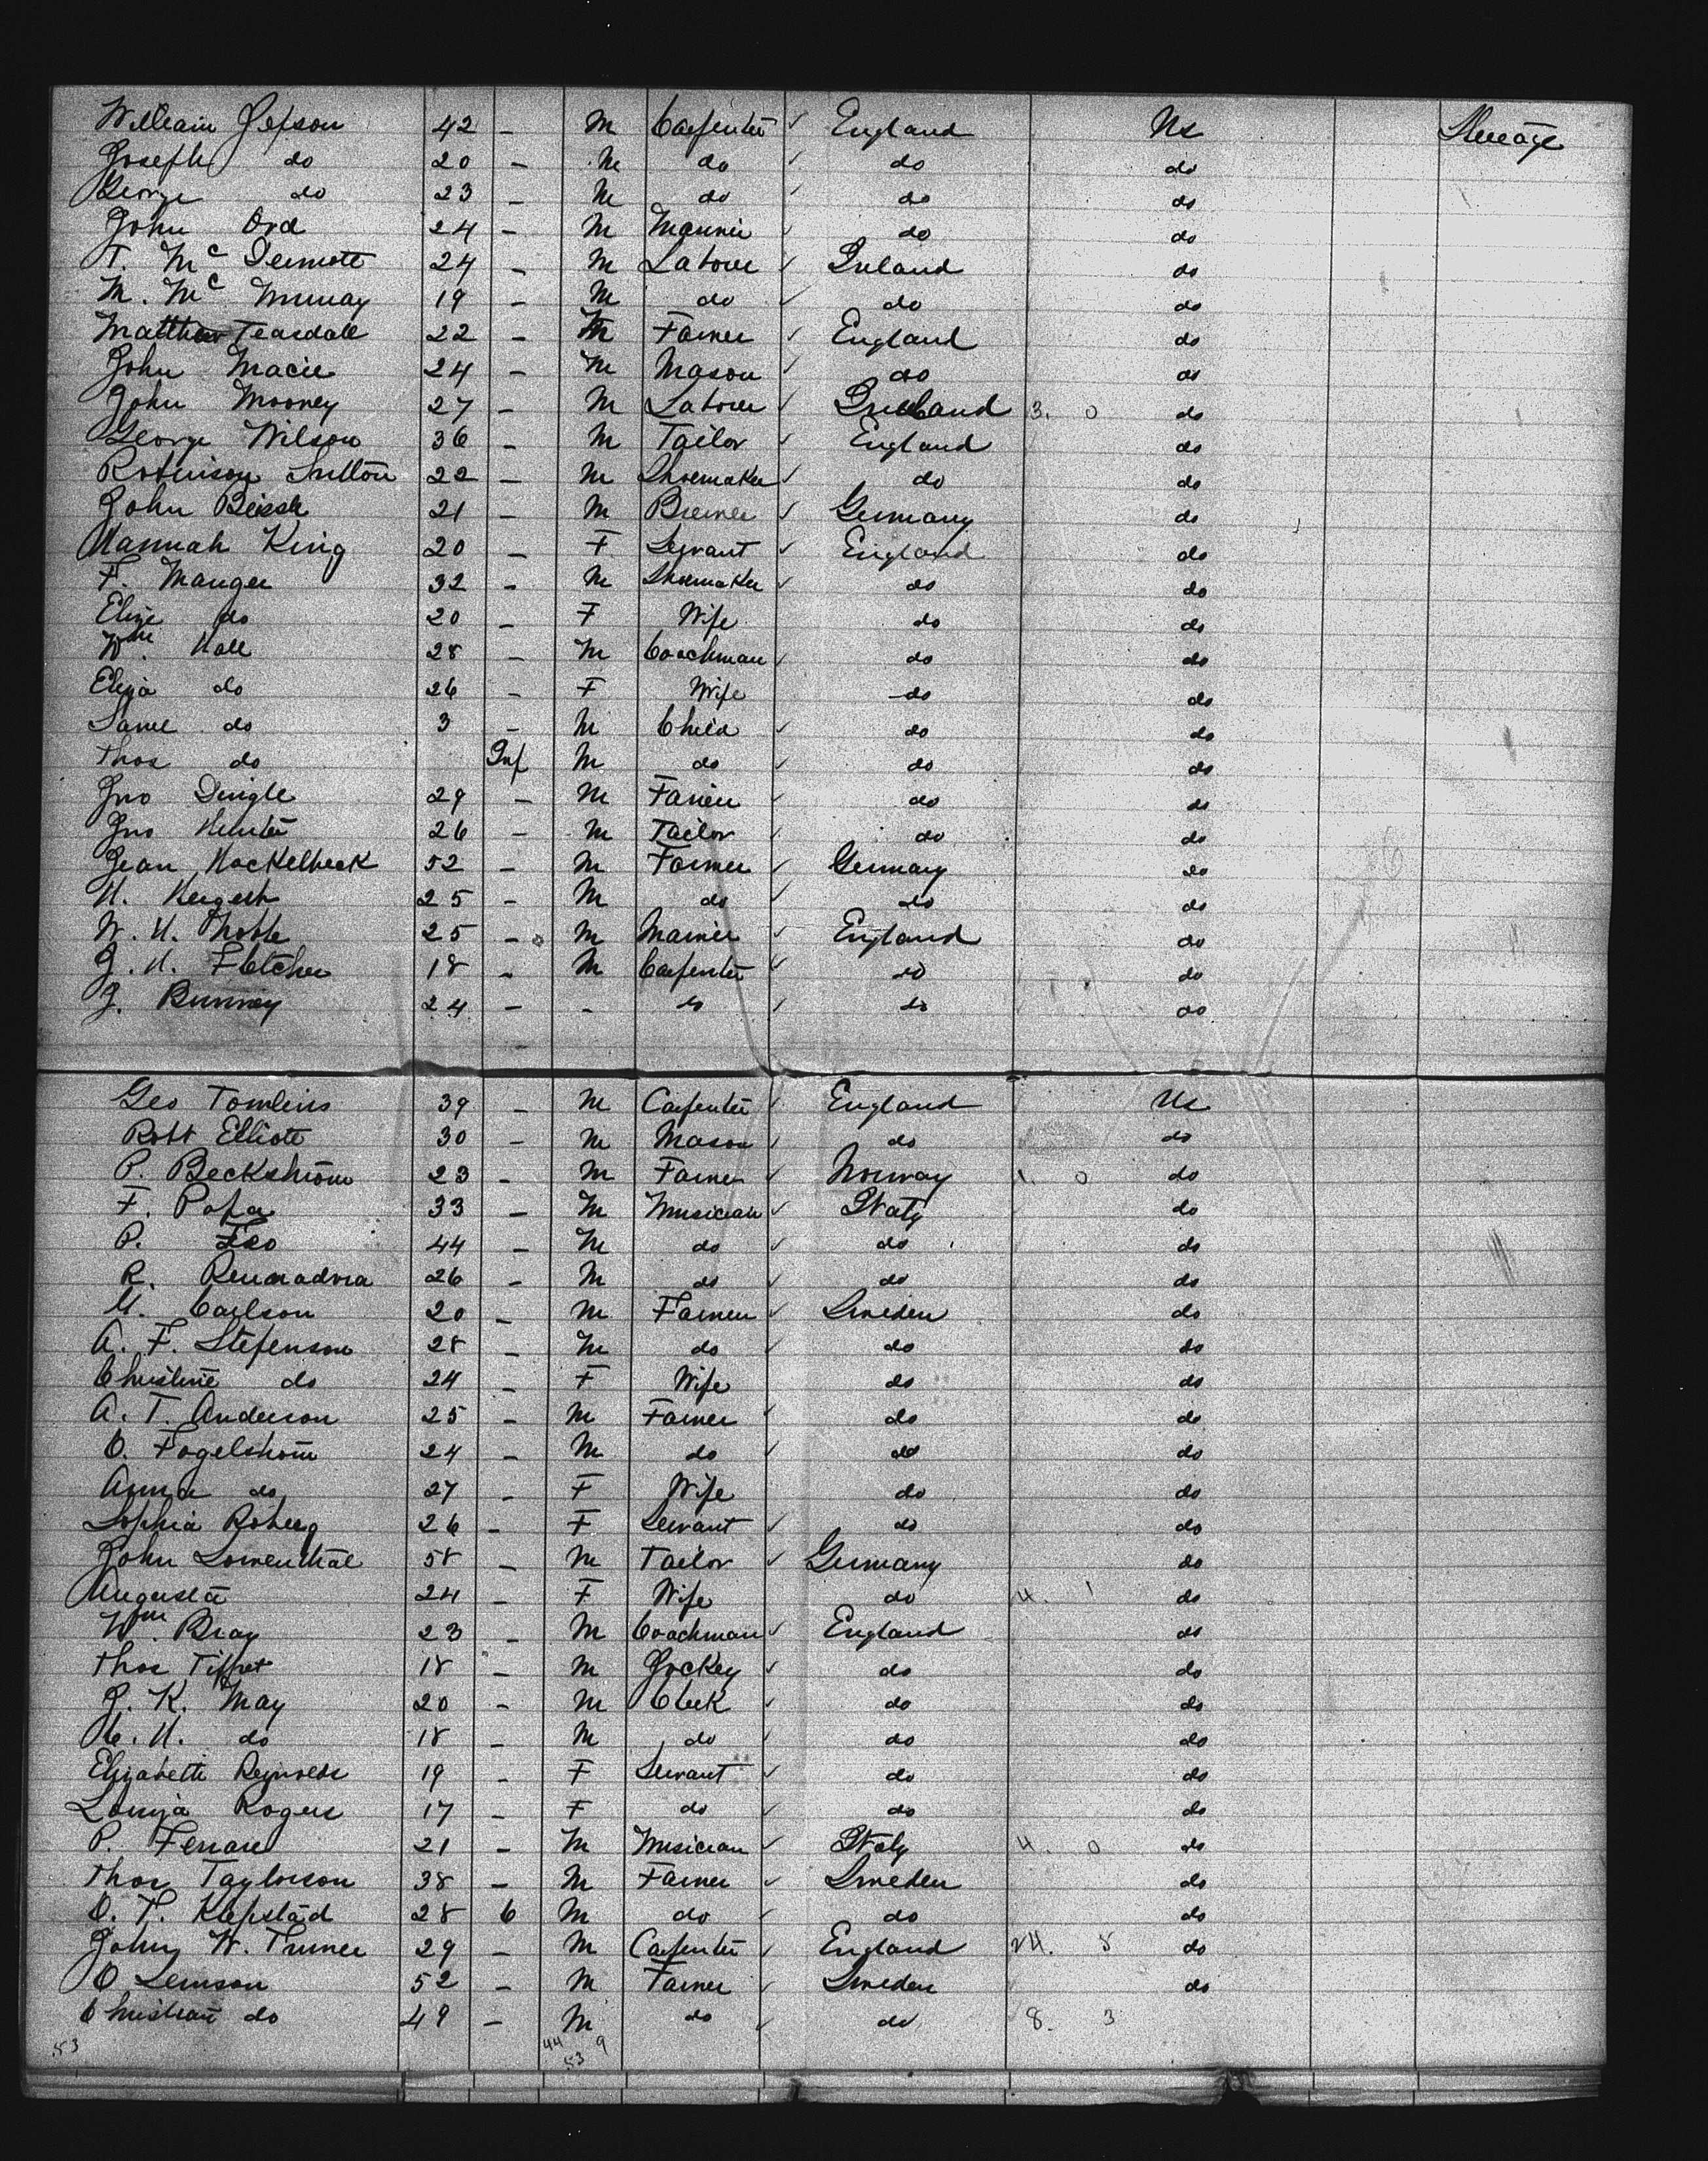 William Jepson 42 - M Carpenter ✓ England US Steerage
Joseph do 20 - M do ✓ do do
George do 23 - M do ✓ do do
John Ord 24 - M Mariner ✓ do do
T. McDermott 24 - M Laborer ✓ Ireland do
M. Mc 19 - M do ✓ do do
Matthew Teasdale 22 - M Farmer ✓ England do
John Macie 24 - M Mason ✓ do do
John Mooney 27 - M Laborer ✓ Ireland 3. 0 do
George Wilson 36 - M Tailor ✓ England do
Robinson Sutton 22 - M Shoemaker ✓ do do
John 21 - M ✓ Germany do
Hannah King 20 - F Servant ✓ England do
F. Manger 32 - M Shoemaker ✓ do do
Eliza do 20 - F Wife do do
Wm. Hall 28 - M Coachman ✓ do do
Eliza do 26 - F Wife do do
Saml do 3 - M Child ✓ do do
Thos do Inf M do ✓ do do
Jno Dingle 29 - M Farrier ✓ do do
Jno Hunter 26 - M Tailor ✓ do do
Jean Hackelbeck 52 - M Farmer ✓ Germany do
H. 25 - M do ✓ do do
W. H. Noble 25 - M Mariner ✓ England do
J. H. Fletcher 18 - M Carpenter ✓ do do
J. Bunney 24 - - do ✓ do do
Geo Tomlins 39 - M Carpenter ✓ England US
Robt Elliott 30 - M Mason ✓ do do
P. Beckstrom 23 - M Farmer ✓ Norway 1. 0 do
F. Popa 33 - M Musician ✓ Italy do
P. Leo 44 - M do ✓ do do
R. 26 - M do ✓ do do
M. Carlson 20 - M Farmer ✓ Sweden do
A. F. Stefenson 28 - M do ✓ do do
Christine do 24 - F Wife do do
A. T. Anderson 25 - M Farmer ✓ do do
O. Fogelstrom 24 - M do ✓ do do
Anna do 27 - F Wife do do
Sophia Roberg 26 - F Servant ✓ do do
John Lowenthal 58 - M Tailor ✓ Germany do
Augusta 24 - F Wife do 4. 1 do
Wm. Bray 23 - M Coachman ✓ England do
Thos Tippet 18 - M Jockey ✓ do do
J. K. May 20 - M Clerk ✓ do do
C. H. do 18 - M do ✓ do do
Elizabeth Reynolds 19 - F Servant ✓ do do
Louiza Rogers 17 - F do ✓ do do
P. Ferrari 21 - M Musician ✓ Italy 4. 0 do
Thos Taylorson 38 - M Farmer ✓ Sweden do
O. T. Kapstad 28 6 M do ✓ do do
John W. Turner 29 - M Carpenter ✓ England 24. 5 do
O 52 - M Farmer ✓ Sweden do
Christian do 49 - M do ✓ do 8. 3
53 44 9
53